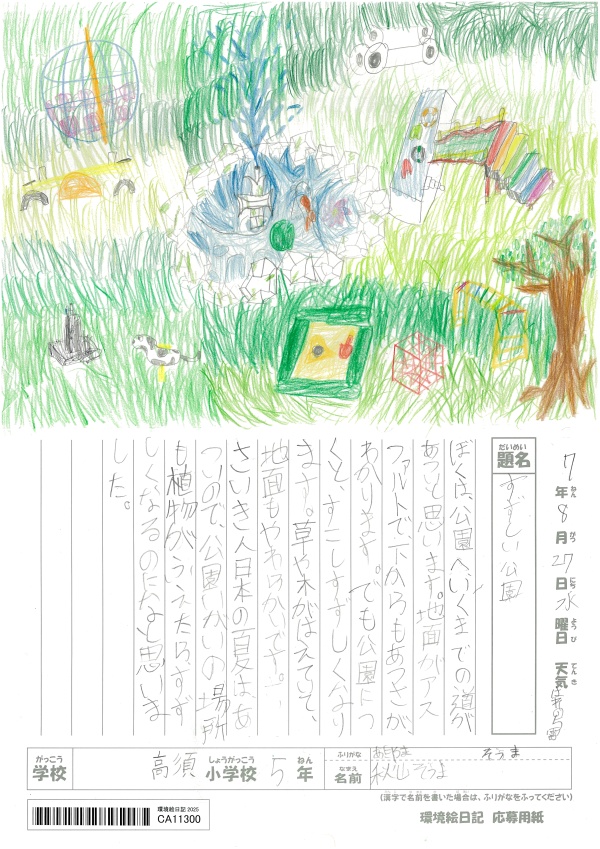 7年8月27日水曜日 天気
ねん
がつ
にち
ようび
てんき
だいめい
題名
すずしい公園
ぼくは、公園へいくまでの道が
あついと思います。地面がアス
ファルトで、下からもあつさが、
わかります。でも公園につ
くと、すこしすずしくなり
ます。草や木がはえていて、
地面もやわらかいです。
さいきん日本の夏は、あ
ついので、公園いがいの場所
も植物がふえたらすず
しくなるのになと思いま
した。
がっこう
学校
高須
しょうがっこう
小学校
5
ねん
年
ふりがな
あきやま そうま
なまえ
名前
秋山そうま
(漢字で名前を書いた場合は、ふりがなをふってください)
環境絵日記2025
CA11300
環境絵日記 応募用紙